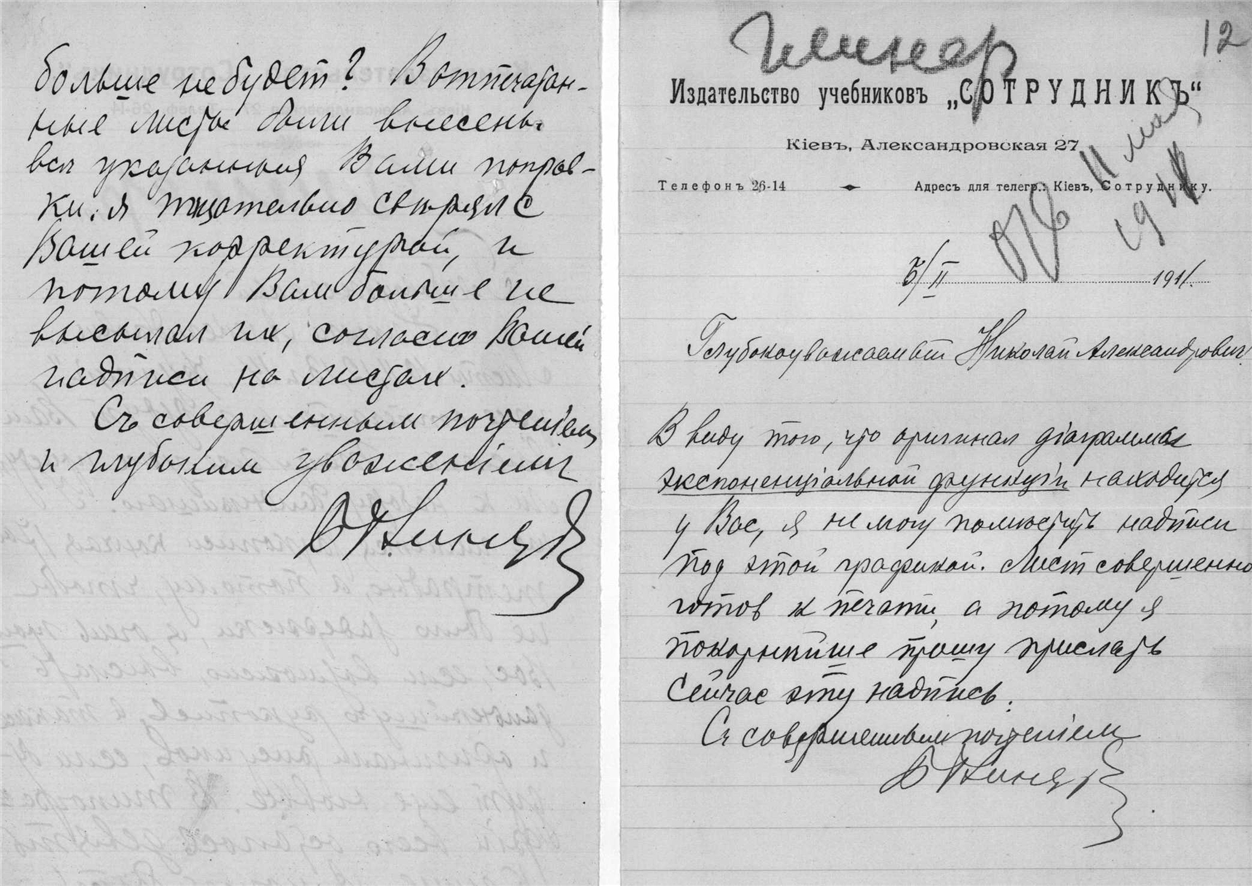 больше не будет? В отпечатан-
ные листы были внесены
все указанныя Вами поправ-
ки. я тщательно сверял с
Вашей корректурой, и
потому Вам больше не
высылал их, согласно Вашей
надписи на листах.
Съ совершенным почтеніем
и глубоким уваженіем
12
Издательство учебниковъ „СОТРУДНИКЪ“
Кіевъ, Александровская 27
Телефонъ 26-14
Адресъ для телегр.: Кіевъ, Сотруднику.
11 мая
1911
5/II 1911.
Глубокоуважаемый Николай Александрович.
В виду того, что оригинал діаграммы
экспоненціальной функціи находится
у Вас, я не могу поместить надписи
под этой графикой. Лист совершенно
готов к печати, а потому я
покорнейше прошу прислать
сейчас эту надпись.
Съ совершенным почтеніем